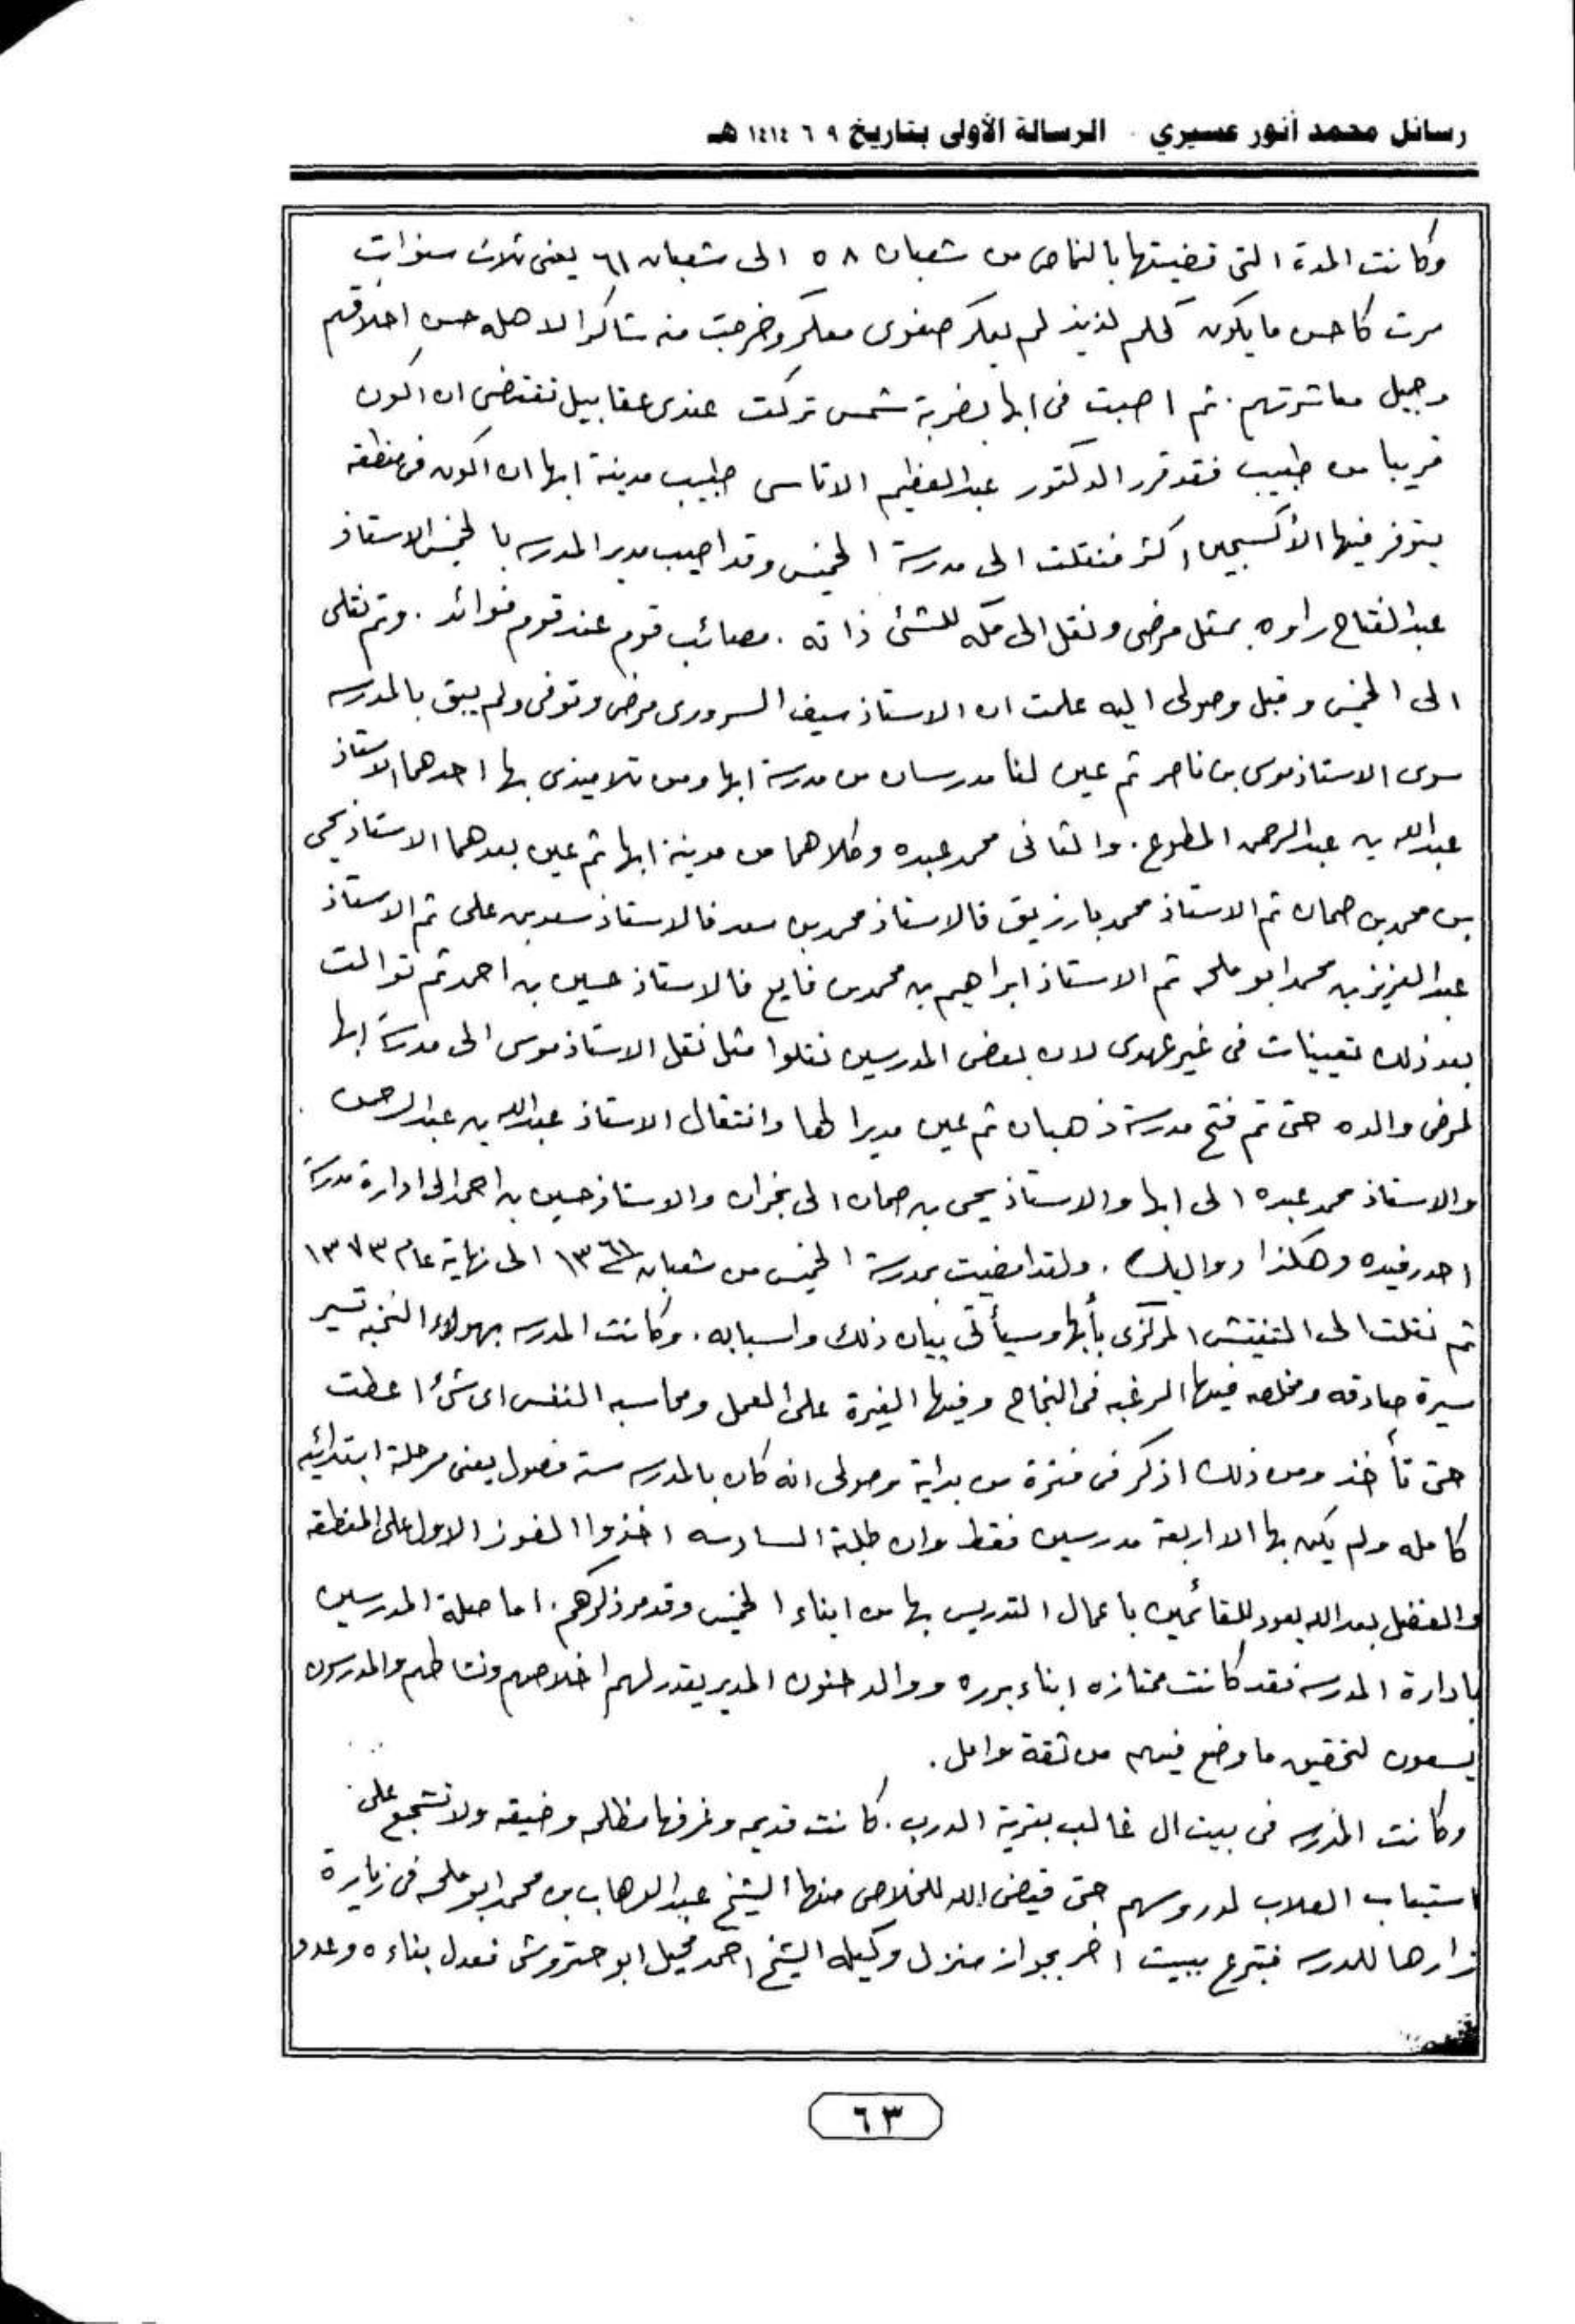 رسائل محمد أنور عسيري - الرسالة الأولى بتاريخ ٩ ٦ ١٤١٤ هـ
وكانت المدة التى قضيتها بالنماص من شعبان ٥٨ الى شعبان ٦١ يعنى ثلاث سنوات
مرت كاحسن ما يكون كحلم لذيذ لم يعكر صفوى معكر وخرجت منه شاكرا لاهله حسن اخلاقهم
وجميل معاشرتهم . ثم اصبت فى ابها بضربة شمس تركت عندى عقابيل تقتضى ان اكون
قريبا من طبيب فقد قرر الدكتور عبدالعظيم الاتاسى طبيب مدينة ابها ان اكون فى منطقه
يتوفر فيها الأكسجين اكثر فنقلت الى مدرسة الخميس وقد اصيب مدير المدرسه بالخميس الاستاذ
عبدالفتاح راوه بمثل مرضى ونقل الى مكه للشئ ذاته . مصائب قوم عند قوم فوائد . وتم نقلى
الى الخميس وقبل وصولى اليه علمت ان الاستاذ سيف السرورى مرض وتوفى ولم يبق بالمدرسه
سوى الاستاذ موسى بن ناصر ثم عين لنا مدرسان من مدرسة ابها ومن تلاميذى بها احدهما الاستاذ
عبدالله بن عبدالرحمن المطوع . والثانى محمد عبده وكلاهما من مدينة ابها ثم عين بعدهما الاستاذ يحى
بن محمد بن صمان ثم الاستاذ محمد بارزيق فالاستاذ محمد بن سعد فالاستاذ سعد بن على ثم الاستاذ
عبدالعزيز بن محمد ابو ملحه ثم الاستاذ ابراهيم بن محمد بن فايع فالاستاذ حسين بن احمد ثم توالت
بعد ذلك تعيينات فى غير عهدى لان بعض المدرسين نقلوا مثل نقل الاستاذ موسى الى مدرسة ابها
لمرض والده حتى تم فتح مدرسة ذهبان ثم عين مديرا لها وانتقال الاستاذ عبدالله بن عبدالرحمن
والاستاذ محمد عبده الى ابها والاستاذ يحى بن صمان الى نجران والاستاذ حسين بن احمد الى ادارة مدرسة
احد رفيده وهكذا دواليك . ولقد امضيت بمدرسة الخميس من شعبان ١٣٦١ الى نهاية عام ١٣٧٣
ثم نقلت الى التفتيش المركزى بأبها وسيأتى بيان ذلك واسبابه . وكانت المدرسه بهولاء النخبه تسير
سيرة صادقه ومخلصه فيها الرغبه فى النجاح وفيها الغيرة على العمل ومحاسبه النفس اى شئ اعطت
حتى تأخذ ومن ذلك اذكر فى فترة من بداية وصولى انه كان بالمدرسه سته فصول يعنى مرحلة ابتدائيه
كامله ولم يكن بها الا اربعة مدرسين فقط وان طلبة السادسه اخذوا الفوز الاول على المنطقه
والفضل بعد الله يعود للقائمين باعمال التدريس بها من ابناء الخميس وقد مر ذكرهم . اما صلة المدرسين
بادارة المدرسه فقد كانت ممتازه ابناء برره ووالد حنون المدير يقدر لهم اخلاصهم ونشاطهم والمدرسون
يسعون لتحقيق ما وضع فيهم من ثقة وامل .
وكانت المدرسه فى بيت ال غالب بقرية الدرب . كانت قديمه وغرفها مظلمه وضيقه ولا تشجع على
استيعاب الطلاب لدروسهم حتى قيض الله للخلاص منها الشيخ عبدالوهاب بن محمد ابو ملحه فى زيارة
زارها للمدرسه فتبرع ببيت اخر بجوار منزل وكيله الشيخ احمد محيل ابو حتروش فعدل بناءه وعدد
٦٣